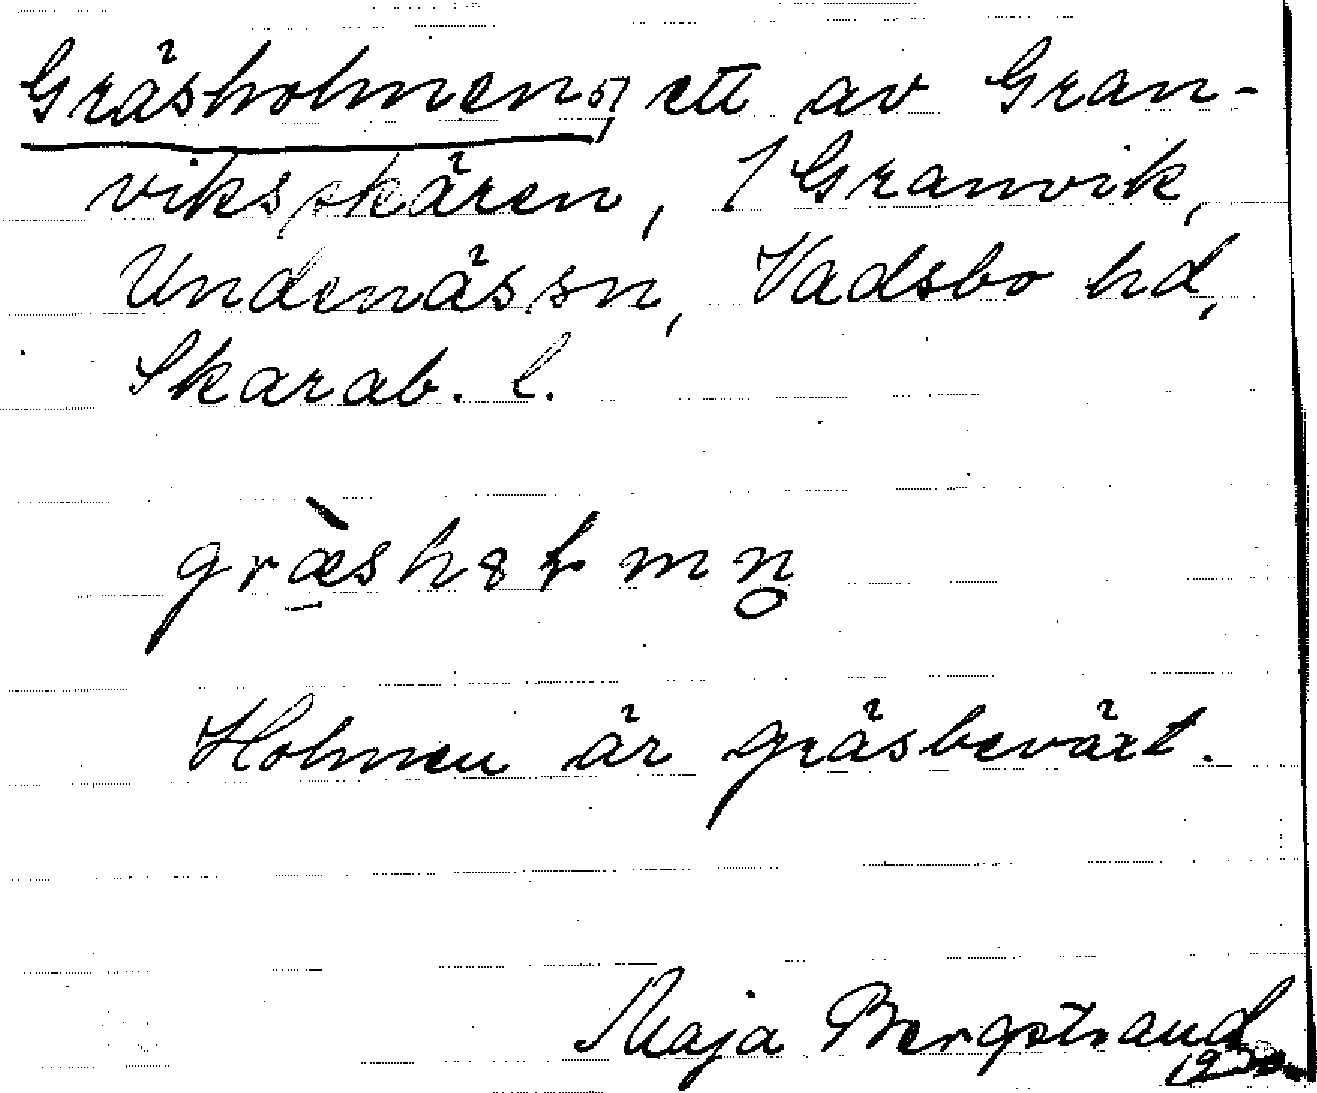 Gräsholmen, ett av Gran-
viksskären, / Granvik,
Undenäs sn, Vadsbo hd,
Skarab. l.
Holmen är gräsbevärt.
Maja Bergstrand